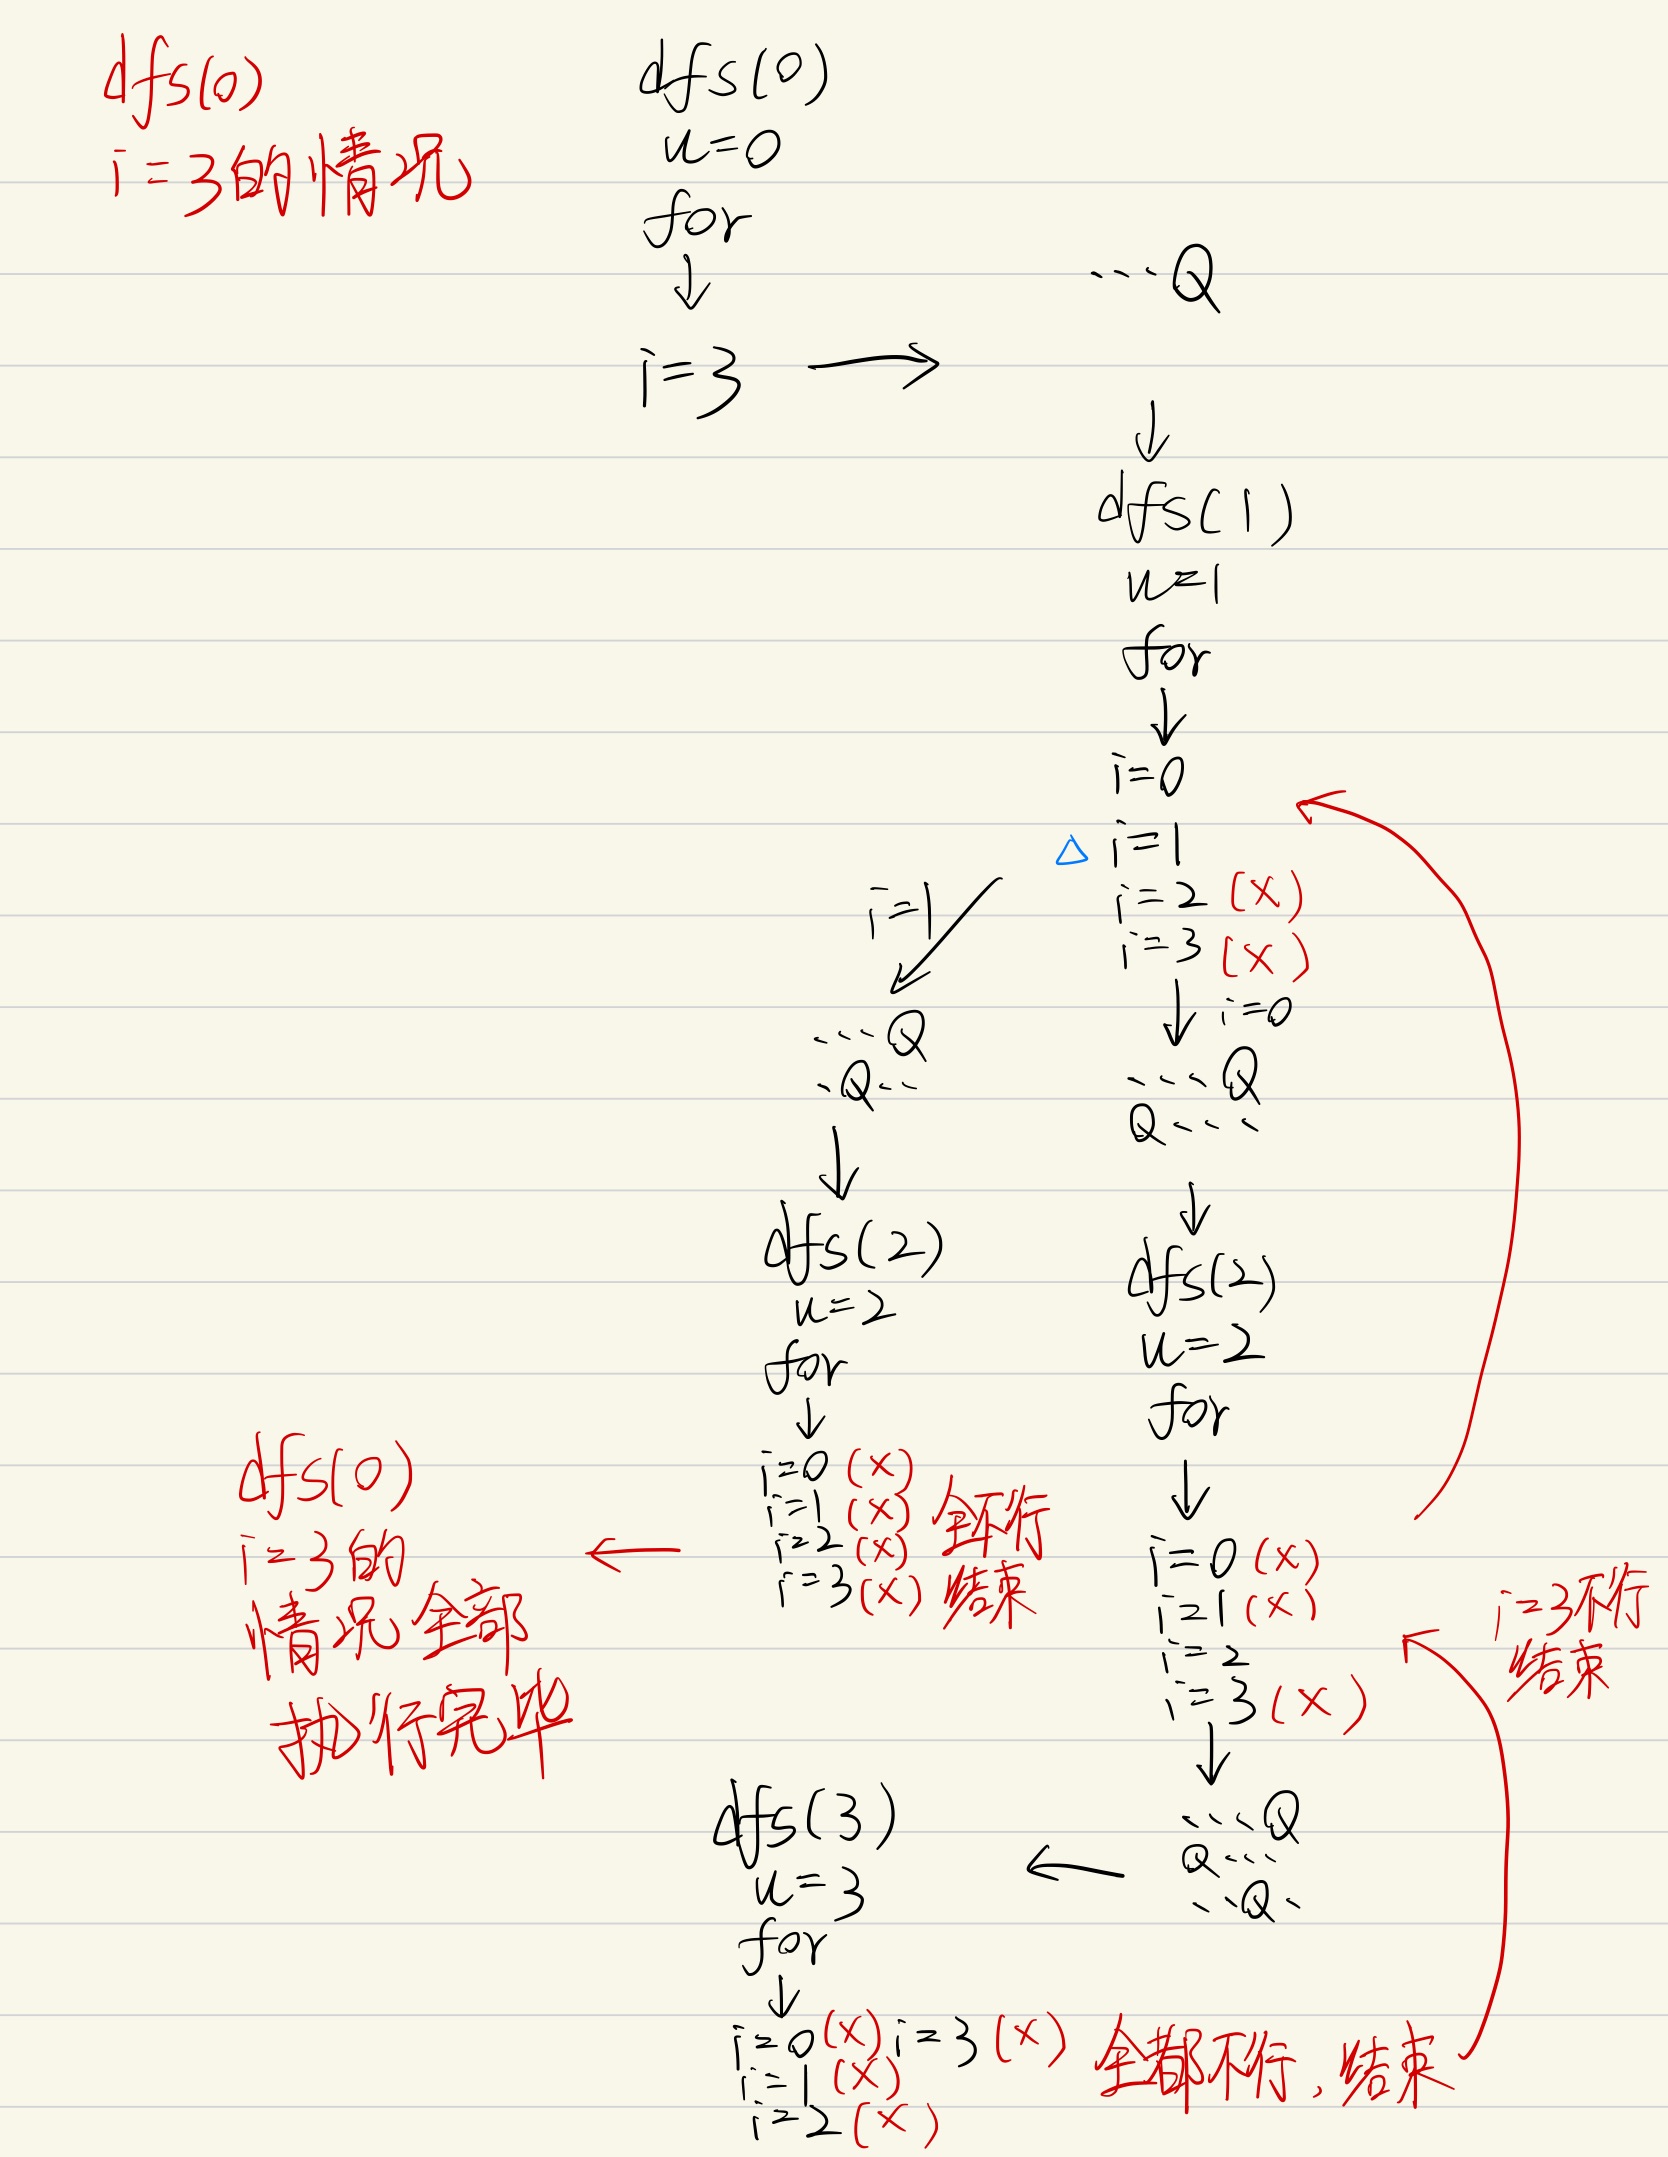 dfs(0)
i=3的情况
dfs(0)
u=0
for
↓
i=3 →
...Q
↓
dfs(1)
u=1
for
↓
i=0
△ i=1
i=2 (x)
i=3 (x)
↓ i=0
...Q
Q...
↓
dfs(2)
u=2
for
↓
i=0 (x)
i=1 (x)
i=2
i=3 (x)
↓
...Q
Q...
..Q.
←
dfs(3)
u=3
for
↓
i=0 (x) i=3 (x)
i=1 (x)
i=2 (x)
全都不行,结束
i=3不行
结束
i=1
...Q
.Q..
↓
dfs(2)
u=2
for
↓
i=0 (x)
i=1 (x)
i=2 (x)
i=3 (x)
全不行
结束
←
dfs(0)
i=3的
情况全部
执行完毕